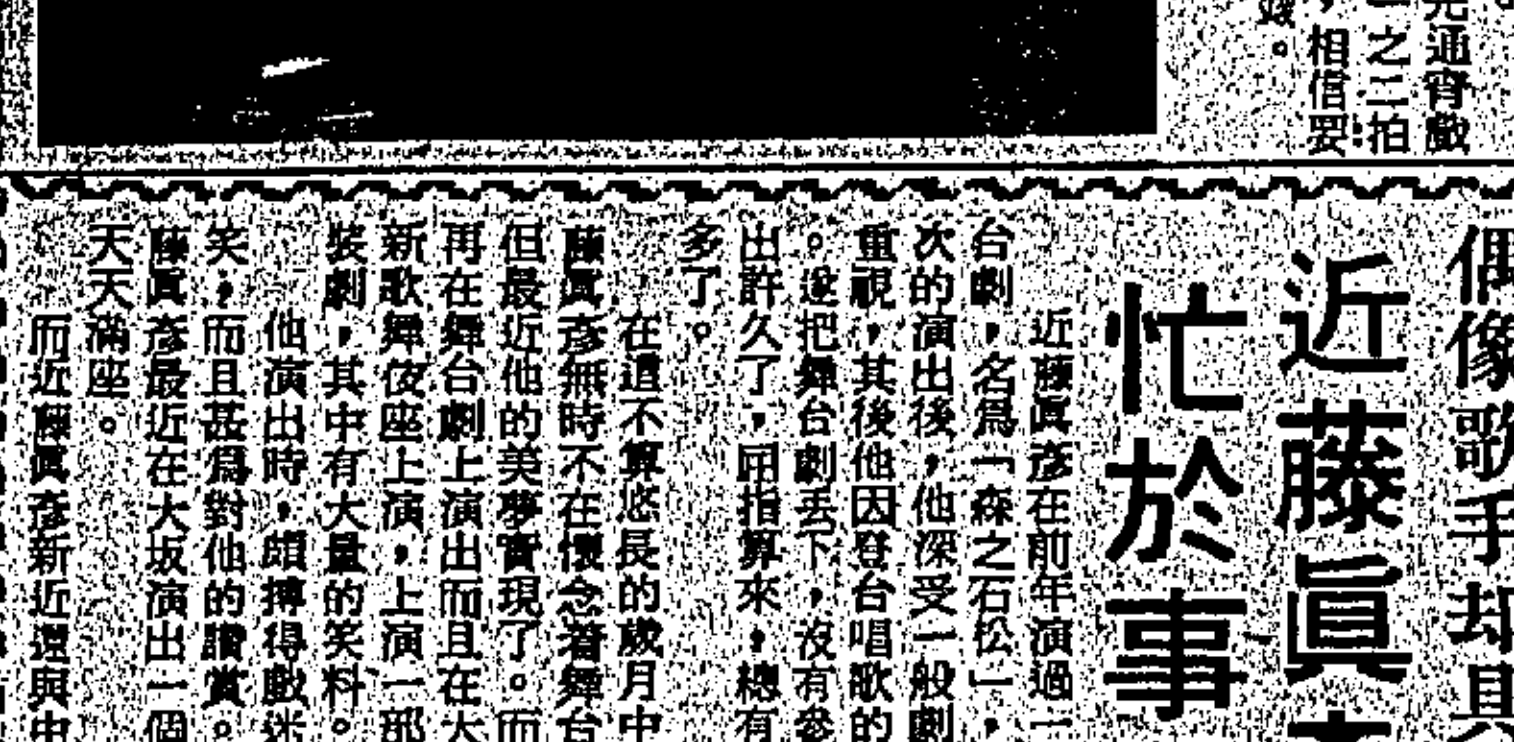 光通宵戲
一之二拍
，相信要
。
偶像歌手却具
近藤眞彥
忙於事
近藤眞彥在前年演過一
台劇，名爲「森之石松」，
次的演出後，他深受一般劇
重視，其後他因登台唱歌的
。遂把舞台劇丟下，沒有參
出許久了，屈指算來，總有
多了。
在這不算悠長的歲月中
藤眞彥無時不在懷念着舞台
但最近他的美夢實現了。而
再在舞台劇上演出而且在大
新歌舞伎座上演，上演一部
裝劇，其中有大量的笑料。
他演出時，頗搏得戲迷
笑，而且甚爲對他的讚賞。
藤眞彥最近在大坂演出一個
天天滿座。
而近藤眞彥新近還與中